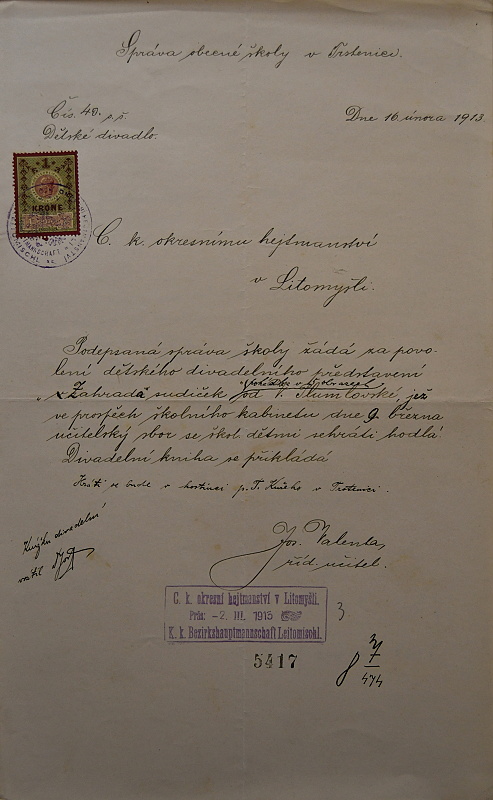 Správa obecné školy v Trstenici.
Čís. 49. p. š.
Dne 16. února 1913
Dětské divadlo.
1
KRONE
C. k. okresnímu hejtmanství
v Litomyšli.
Podepsaná správa školy žádá za povo-
lení dětského divadelního představení
pohádka v
„Zahrada sudiček" od V. Štumlovské, jež
ve prospěch školního kabinetu dne 9. března
učitelský sbor se škol. dětmi sehráti hodlá.
Divadelní kniha se přikládá
Hráti se bude v hostinci p. F. v Trstenici.
Knížku divadelní
vrátil
Jos. Valenta,
říd. učitel.
C. k. okresní hejtmanství v Litomyšli.
Präs: -2. III. 1915
K. k. Bezirkshauptmannschaft Leitomischl.
3
5417
8 3/7
474